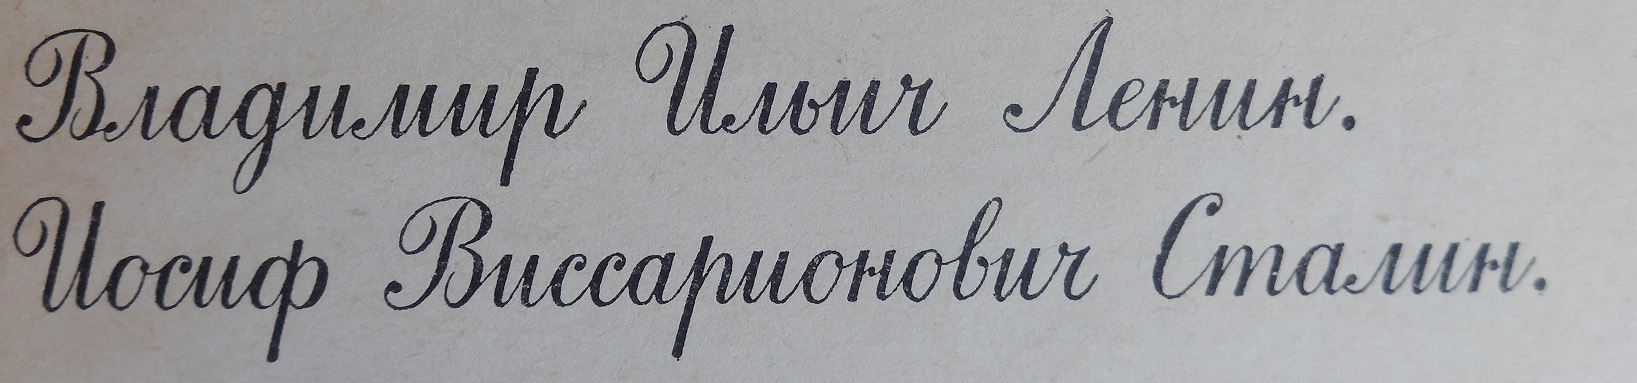 Владимир Ильич Ленин.
Иосиф Виссарионович Сталин.